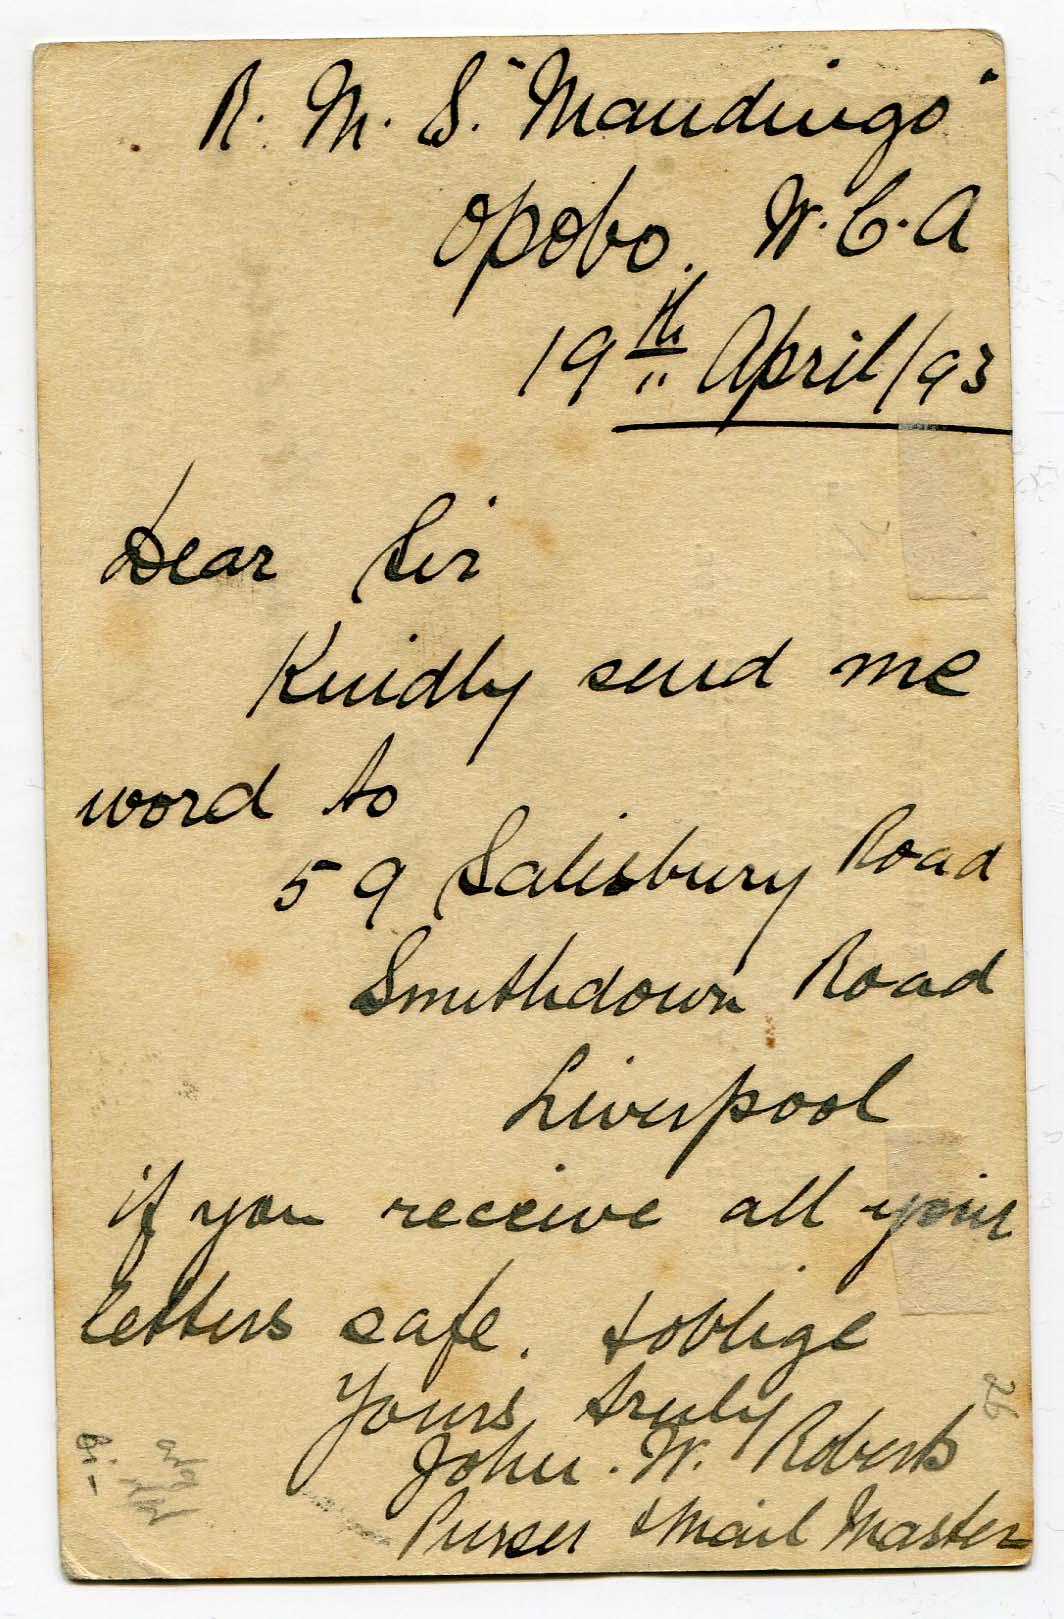 R. M. S. "Mandingo"
Opobo. W. C. A
19th April/93
Dear Sir
Kindly send me
word to
59 Salisbury Road
Smithdown Road
Liverpool
if you receive all your
letters safe. & oblige
Yours truly
John. W. Roberts
Purser & Mail Master
26